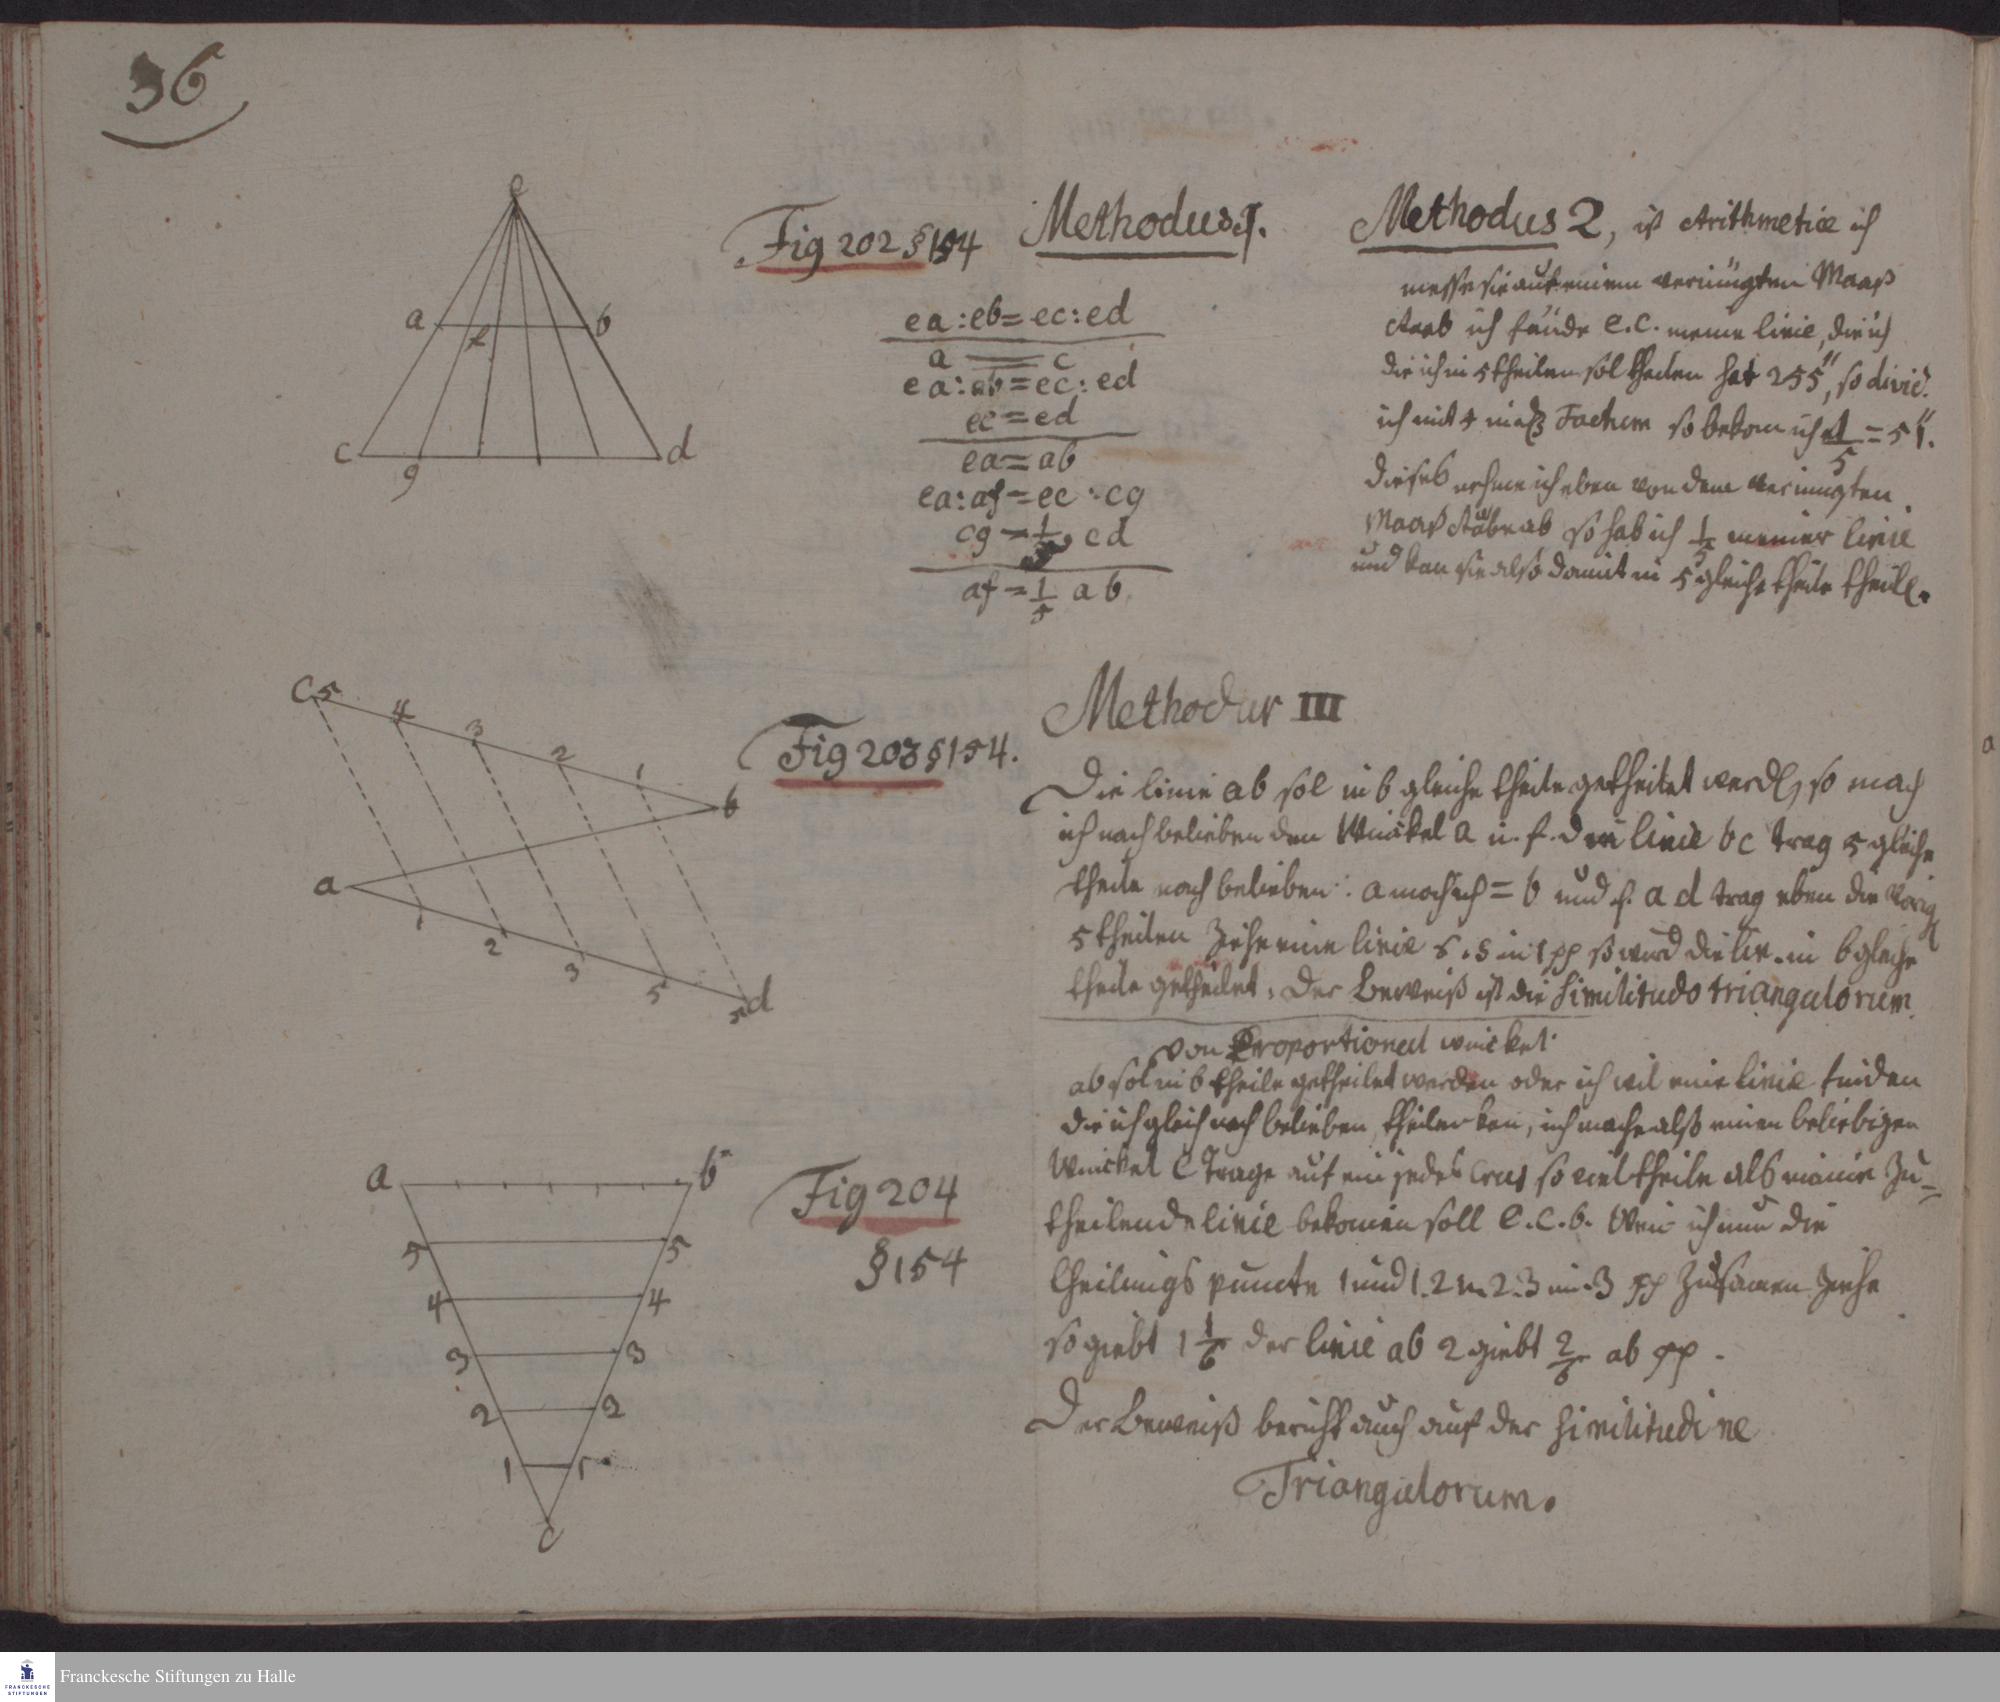 36
e
a
b
f
c
g
d
Fig 202 § 154
Methodus 1.
ea:eb=ec:ed
a c
ea:ab=ec:ed
ec=ed
ea=ab
ea:af=ec:cg
cg= cd
af=1/5 ab
Methodus 2, ist Arithmetice ich
messe sie auf einem verjüngten Maaß
Stab ich finde e.c. meine linie, die ich
die ich in 5 theilen sol theilen hat 255", so divid.
ich mit 5 Factum so bekom ich 1/5 = 51".
Dieses nehme ich eben von dem verjüngten
Maaß Stabe ab so hab ich 1/5 meiner linie
und kan sie also damit in 5 gleiche theile theil.
c 5
4
3
2
1
b
a
1
2
3
5
5
d
Fig 203 § 154.
Methodus III
Die linie ab sol in 6 gleiche theile getheilet werd, so mach
ich nach belieben den Winckel a linie bc trag 5 gleiche
theile nach belieben: a mach ich = b und a d trag eben die vorig
5 theilen Ziehe eine linie pp so wird die lin. in 6 gleiche
theile getheilet. Der Beweiß ist die Similitudo triangulorum.
Von Proportional winckel.
ab sol in 6 theile getheilet werden oder ich wil eine linie finden
die ich gleich nach belieben theilen kan, ich mache also einen beliebigen
Winckel C Trage auf ein jedes Crus so viel theile als meine Zu=
theilende linie bekomen soll e.c. 6. Wen ich nun die
theilungs puncte 1 und 1. 2 u. 2. 3 u. 3 pp Zusamen Ziehe
so giebt 1 1/6 der linie ab 2 giebt 2/6 ab pp.
Der Beweiß beruht auch auf der Similitudine
Triangulorum.
a
b
5
5
4
4
3
3
2
2
1
1
c
Fig 204
§ 154
Franckesche Stiftungen zu Halle
FRANCKESCHE
STIFTUNGEN